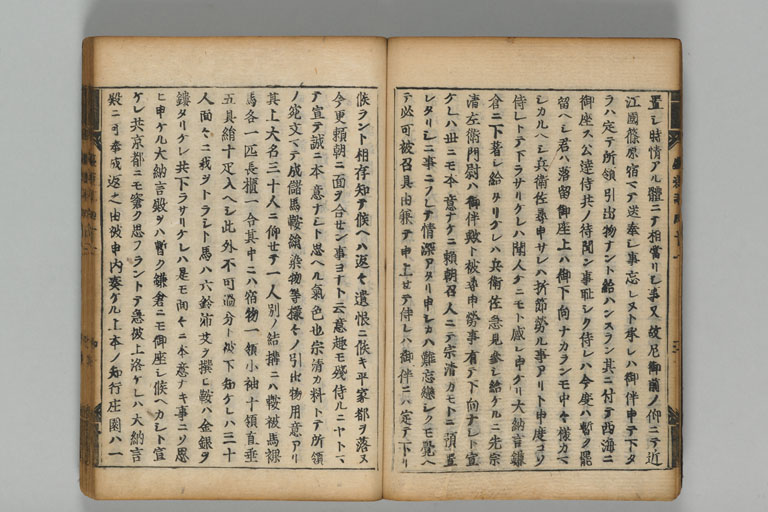 置シ時情アル體ニテ相當リシ事又故尼御前ノ仰ニテ近
江國篠原宿マテ送奉シ事忘レスト承レハ御伴申テ下タ
ラハ定テ所領引出物ナント給ハンスラン其ニ付テ西海ニ
御座ス公達侍共ノ待聞ン事恥シク侍レハ今度ハ暫ク罷
留ヘシ君ハ落留御座上ハ御下向ナカランモ中々様カマ
シカルヘシ兵衛佐尋申サレハ折節勞ル事アリト申度コソ
侍レトテ下ラサリケレハ聞人モト感シ申ケリ大納言鎌
倉ニ下著シ給タリケレハ兵衛佐急見參シ給ケルニ先宗
清左衛門尉ハ御伴歟ト被尋申勞事有テ下向ナシト宣
ケレハ世ニモ本意ナケニ頼朝召人ニテ宗清カモトニ預置
レタリシニ事ニフレテ情深アタリ申シカハ難忘戀シクモ覺ヘ
テ必可被召具由狠テ申上セテ侍レハ御伴ニハ定テ下リ
候ラント相存知テ候ヘハ返々遺恨ニ候キ平家都ヲ落ヌ
今更頼朝ニ面ヲ合セン事ヨナト云意趣モ残侍ルニヤトマ
テ宣テ誠ニ本意ナシト思ヘル氣色也宗清カ料トテ所領
ノ宛文マテ成儲馬鞍絹染物等様々ノ引出物用意アリ
其上大名三十人ニ仰セテ一人別ノ結搆ニハ鞍被馬裸
馬各一匹長櫃一合其中ニハ宿物一領小袖十領直垂
五具絹十疋入ヘシ此外不可過分ト被下知ケレハ三十
人面々ニ我ヲトラシト馬ハ六鈴沛艾ヲ撰ヒ鞍ハ金銀ヲ
鏤タリケレ共下ラサリケレハ是モ面々ニ本意ナキ事ニソ思
ヒ申ケル大納言殿ヲハ暫ク鎌倉ニモ御座シ候ヘカシト宣
ケレ共京都ニモ窂ク思フラントテ急被上洛ケレハ大納言
殿ニ可奉成返之由被申内奏ケル上本ノ知行庄園ハ一